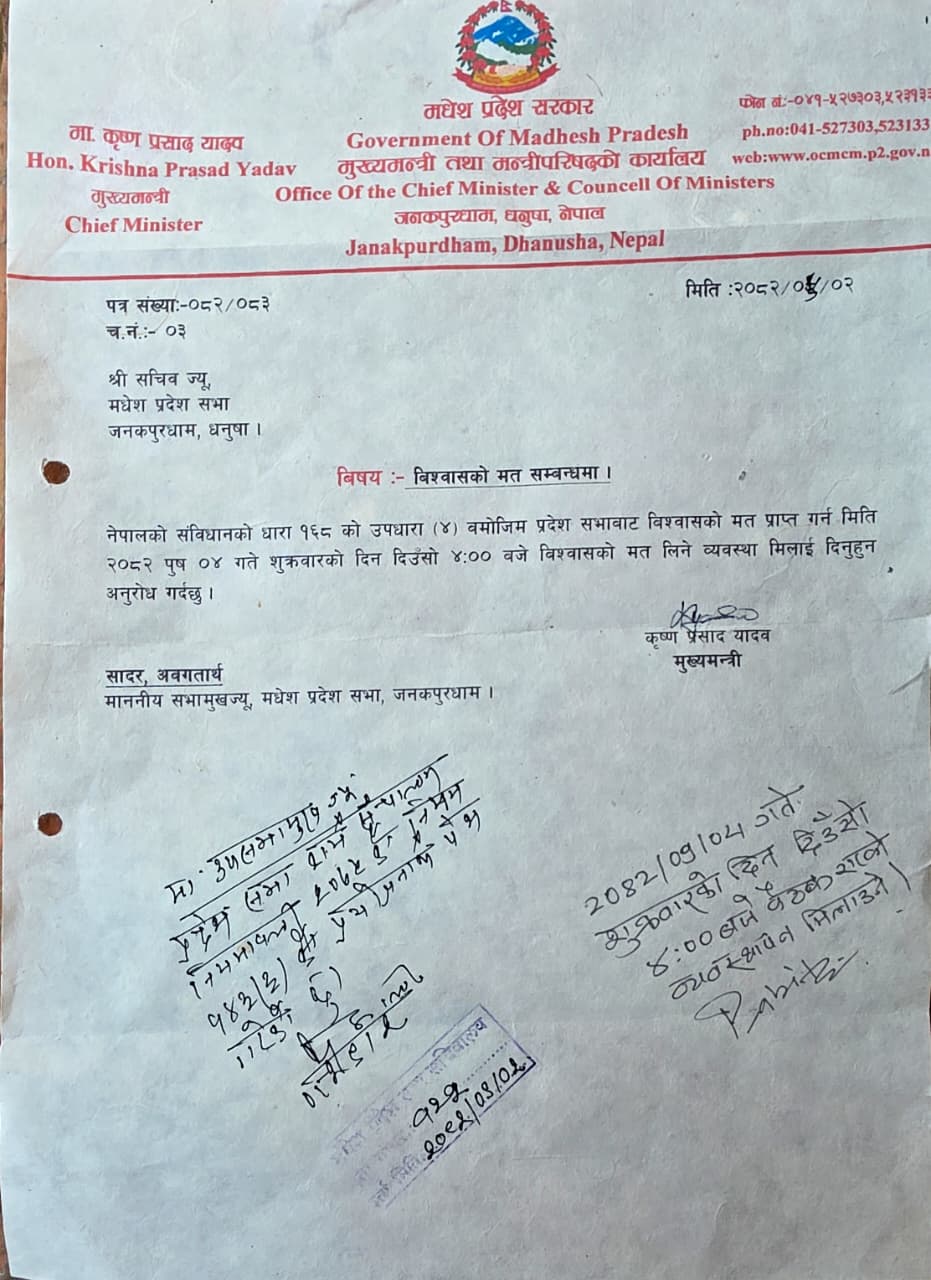 मधेश प्रदेश सरकार
Government Of Madhesh Pradesh
मुख्यमन्त्री तथा मन्त्रीपरिषदको कार्यालय
Office Of the Chief Minister & Councell Of Ministers
जनकपुरधाम, धनुषा, नेपाल
Janakpurdham, Dhanusha, Nepal
मा. कृष्ण प्रसाद यादव
Hon. Krishna Prasad Yadav
मुख्यमन्त्री
Chief Minister
फोन नं:-०४१-५२७३०३,५२३१३३
ph.no:041-527303,523133
web:www.ocmcm.p2.gov.n
मिति :२०८२/०९/०२
पत्र संख्या:-०८२/०८३
च.नं.:- ०३
श्री सचिव ज्यू,
मधेश प्रदेश सभा
जनकपुरधाम, धनुषा ।
बिषय :- बिश्वासको मत सम्बन्धमा ।
नेपालको संविधानको धारा १६८ को उपधारा (४) वमोजिम प्रदेश सभावाट विश्वासको मत प्राप्त गर्न मिति
२०८२ पुष ०४ गते शुक्रवारको दिन दिउँसो ४:०० बजे विश्वासको मत लिने व्यवस्था मिलाई दिनुहुन
अनुरोध गर्दछु ।
कृष्ण प्रसाद यादव
मुख्यमन्त्री
सादर, अवगतार्थ
माननीय सभामुखज्यू, मधेश प्रदेश सभा, जनकपुरधाम ।
मा. उपसभामुख ज्यू
प्रदेश सभा कार्य सञ्चालन
नियमावली २०७५ को नियम
१४२(२)
2082/09/04 गते
शुक्रवारको दिन दिउँसो
४:०० बजे बैठक राख्ने
व्यवस्थापन मिलाउने।
१२२
२०८२/०९/०२